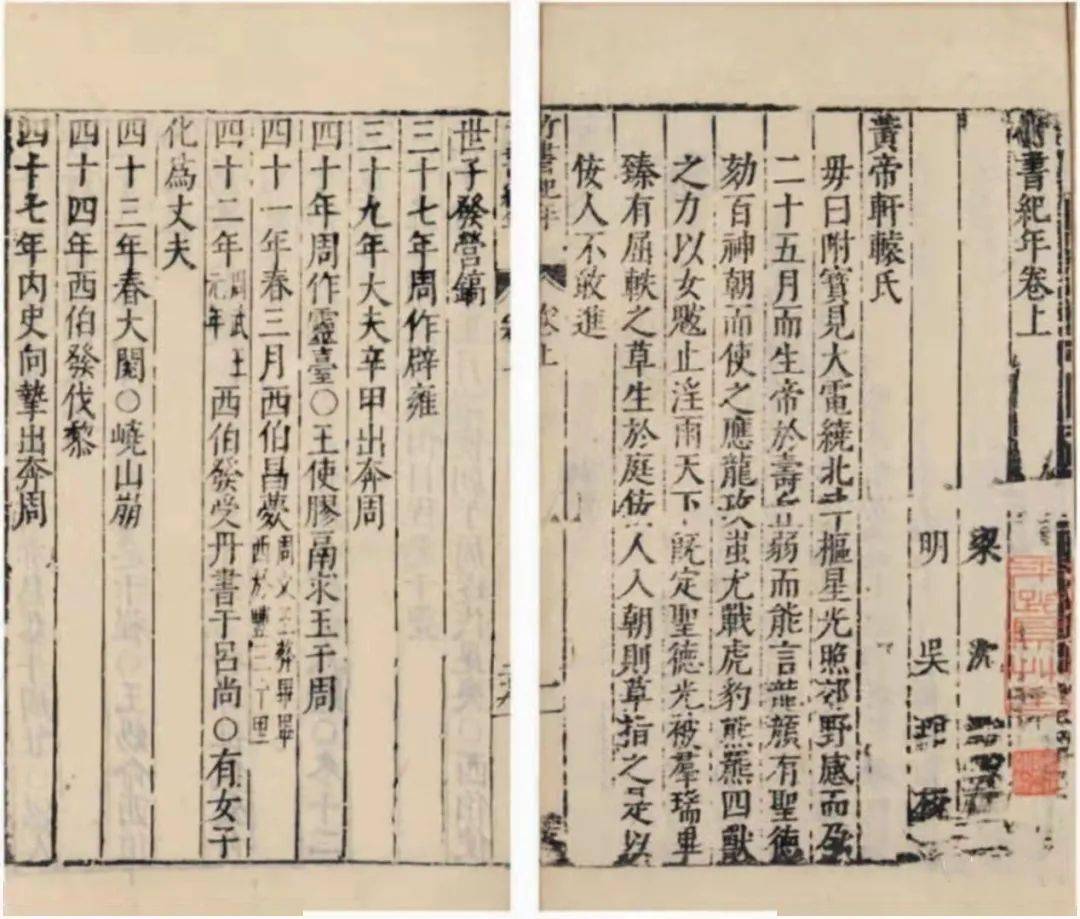 竹書紀年卷上
梁 沈
明 吳
黃帝軒轅氏
母曰附寶見大電繞北斗樞星光照郊野感而孕
二十五月而生帝於壽丘弱而能言龍顏有聖德
劾百神朝而使之應龍攻蚩尤戰虎豹熊羆四獸
之力以女魃止淫雨天下既定聖德光被羣瑞畢
臻有屈軼之草生於庭佞人入朝則草指之是以
佞人不敢進
竹書紀年 卷上 一
世子發營鎬
三十七年周作辟雍
三十九年大夫辛甲出奔周
四十年周作靈臺○王使膠鬲求玉于周
四十一年春三月西伯昌薨周文王葬畢畢西於豐三十里
四十二年周武王元年西伯發受丹書于呂尚○有女子
化為丈夫
四十三年春大閱○嶢山崩
四十四年西伯發伐黎
四十七年內史向摯出奔周